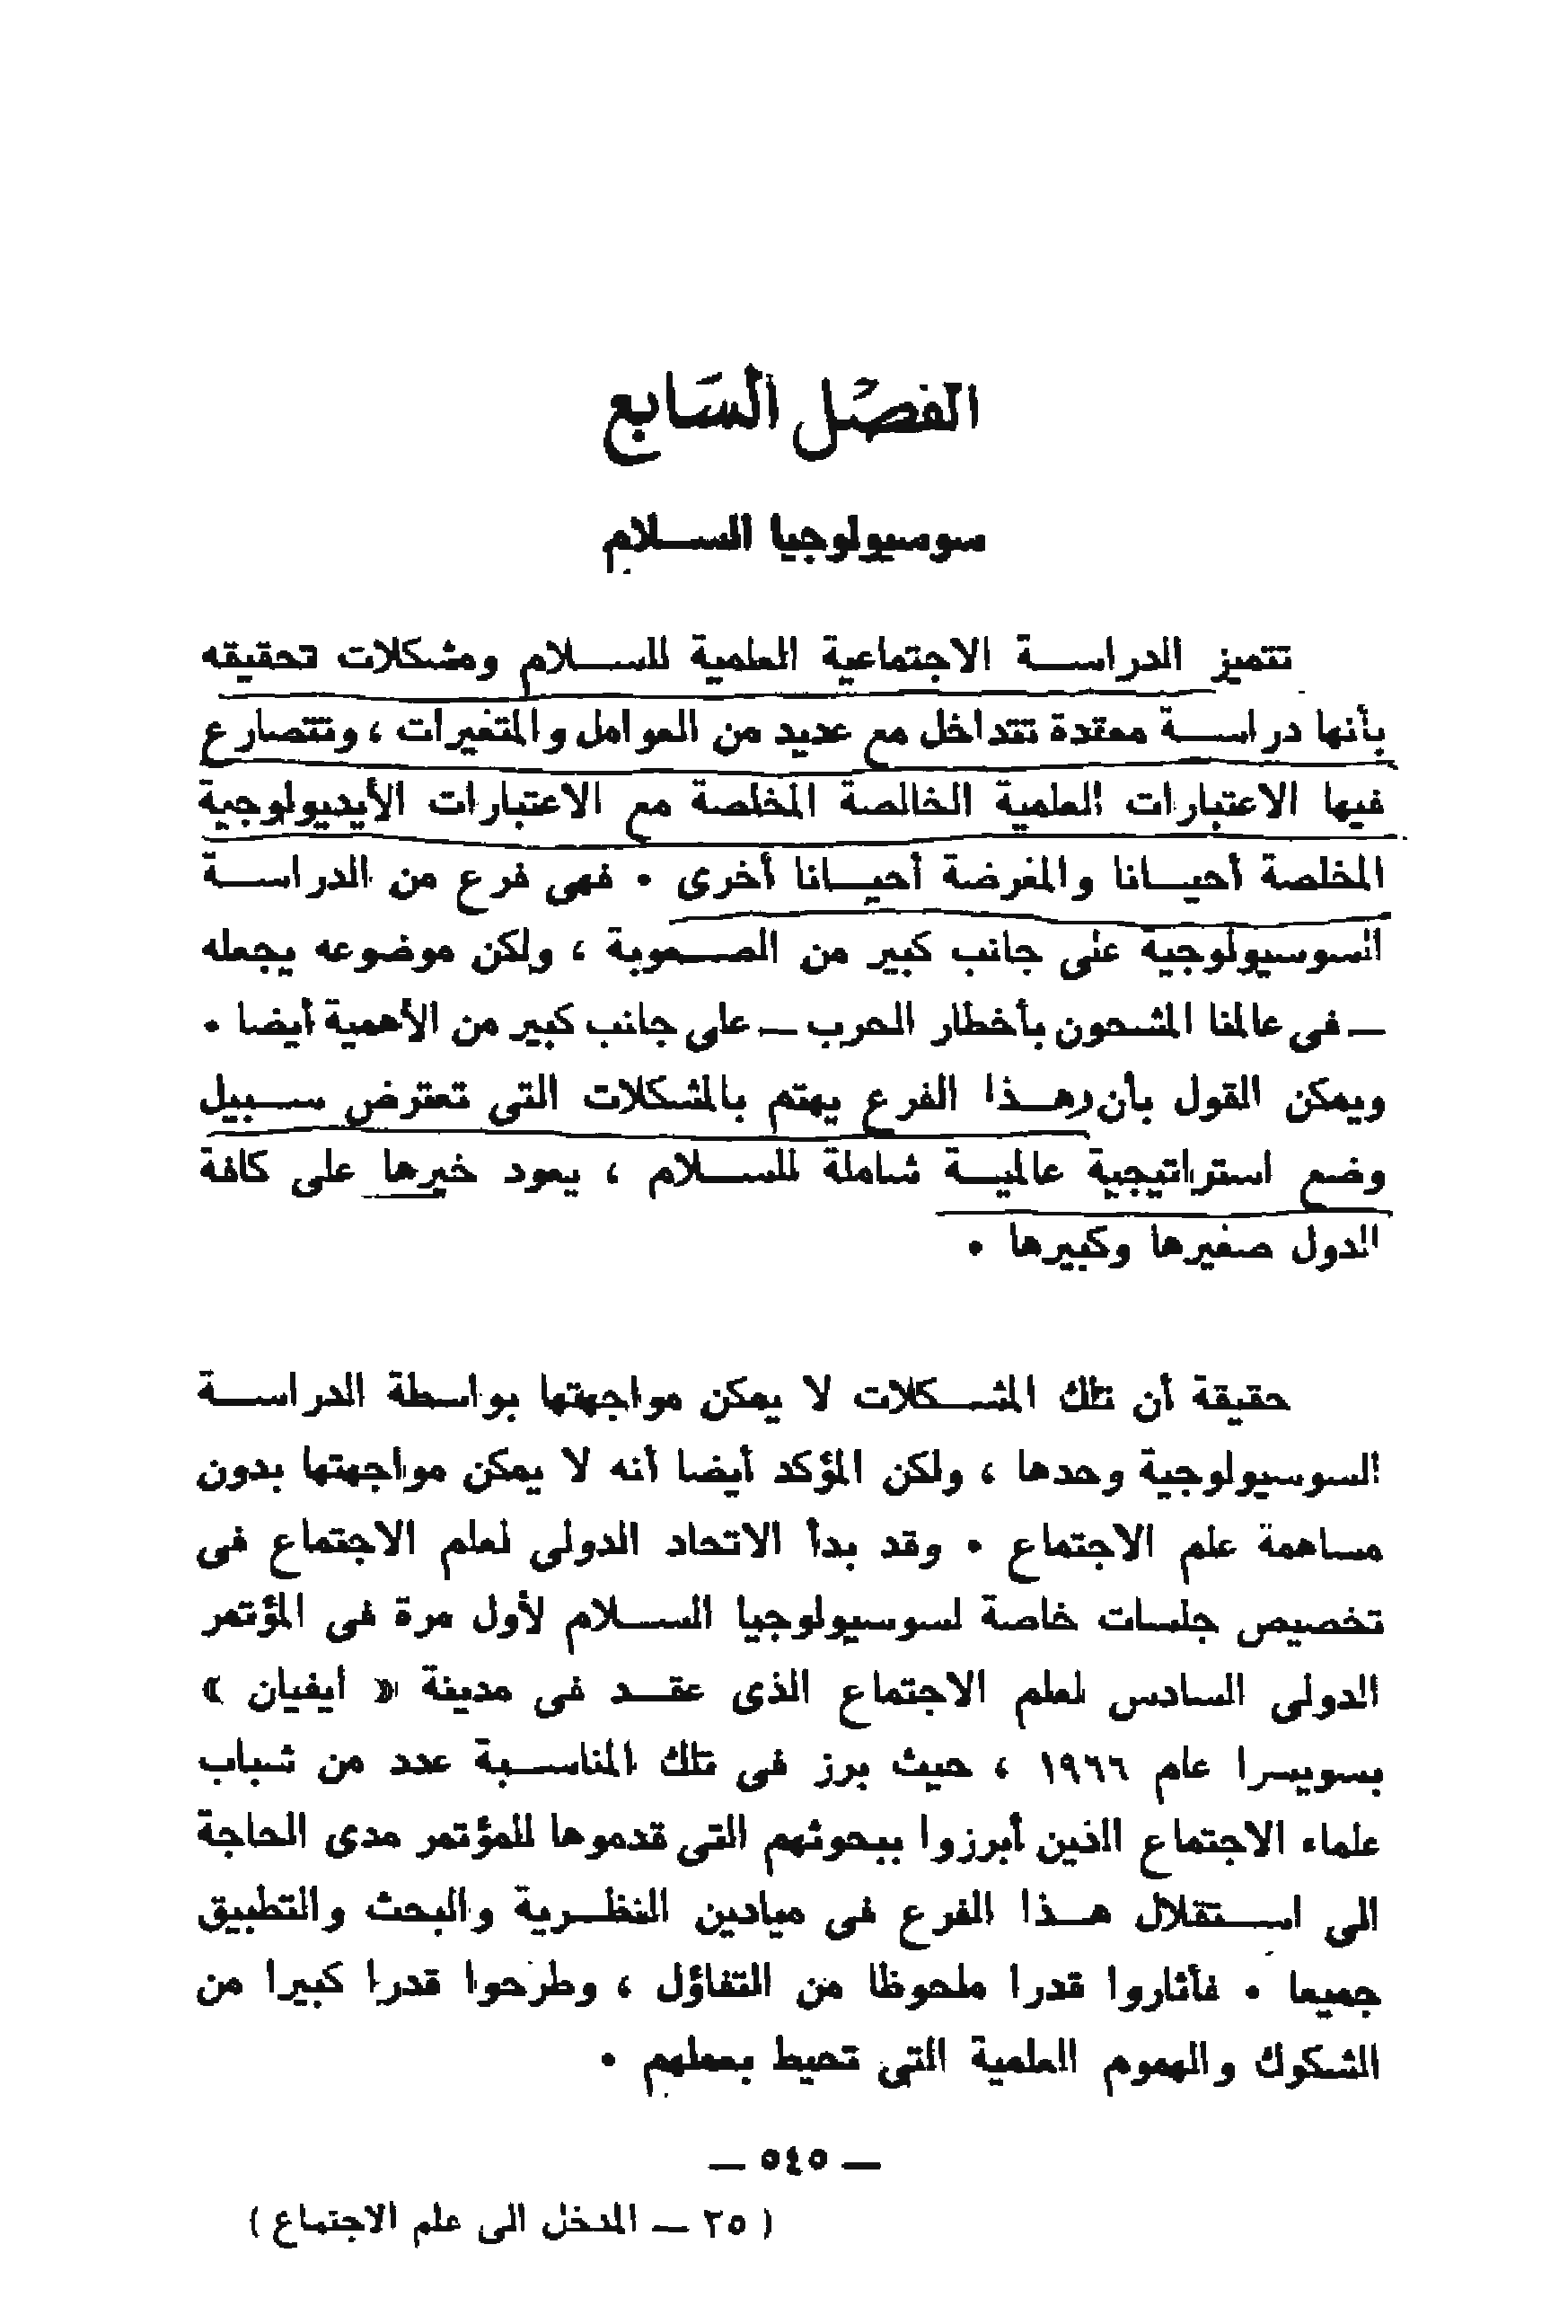 الفصل السابع
سوسيولوجيا الســلام
تتميز الدراســة الاجتماعية العلمية للســلام ومشكلات تحقيقه
بأنها دراســة معقدة تتداخل مع عديد من العوامل والمتغيرات ، وتتصارع
فيها الاعتبارات العلمية الخالصة المخلصة مع الاعتبارات الأيديولوجية
المخلصة أحيــانا والمغرضة أحيــانا أخرى . فهى فرع من الدراســة
السوسيولوجية على جانب كبير من الصــعوبة ، ولكن موضوعه يجعله
ــ فى عالمنا المشحون بأخطار الحرب ــ على جانب كبير من الأهمية أيضا .
ويمكن القول بأن هــذا الفرع يهتم بالمشكلات التى تعترض ســبيل
وضع استراتيجية عالميــة شاملة للســلام ، يعود خيرها على كافة
الدول صغيرها وكبيرها .
حقيقة أن تلك المشــكلات لا يمكن مواجهتها بواسطة الدراســة
السوسيولوجية وحدها ، ولكن المؤكد أيضا أنه لا يمكن مواجهتها بدون
مساهمة علم الاجتماع . وقد بدأ الاتحاد الدولى لعلم الاجتماع فى
تخصيص جلسات خاصة لسوسيولوجيا الســلام لأول مرة فى المؤتمر
الدولى السادس لعلم الاجتماع الذى عقــد فى مدينة « أيفيان »
بسويسرا عام ١٩٦٦ ، حيث برز فى تلك المناســبة عدد من شباب
علماء الاجتماع الذين أبرزوا ببحوثهم التى قدموها للمؤتمر مدى الحاجة
الى اســتقلال هــذا الفرع فى ميادين النظــرية والبحث والتطبيق
جميعا . فأثاروا قدرا ملحوظا من التفاؤل ، وطرحوا قدرا كبيرا من
الشكوك والهموم العلمية التى تحيط بعملهم .
ــ ٥٤٥ ــ
( ٢٥ ــ المدخل الى علم الاجتماع )